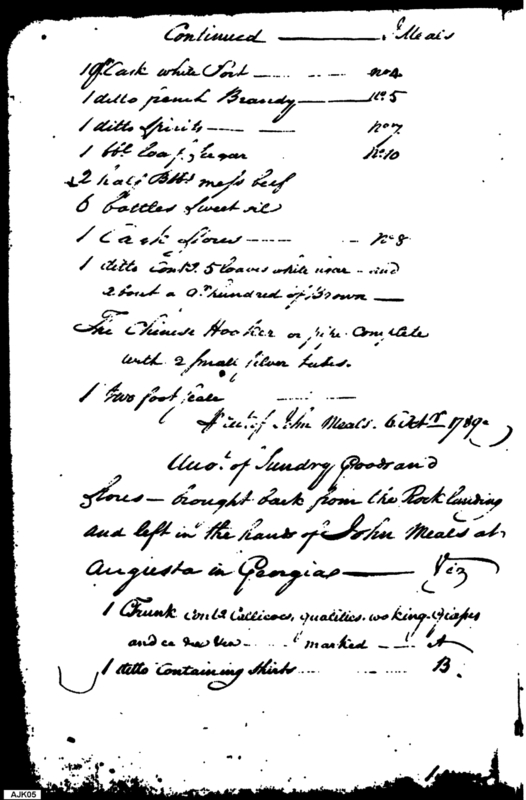 Continued ——— J Meals
1 qr Cask white Port — — no 4
1 ditto french Brandy — no 5
1 ditto Spirits — — no 7
1 bbl loaf Sugar no 10
2 half Bbls mess beef
6 bottles Sweet oil
1 Cask — — no 8
1 ditto Contg 5 loaves white — and
about a qr hundred of Brown —
The Chinese Hooker or pipe complete
with 2 small silver tubes.
1 two foot scale — —
John Meals. 6 Octr 1789
Invo. of Sundry Goods and
Stores — brought back from the Rock landing
and left in the hands of John Meals at
Augusta in Georgia — Viz
1 Trunk Contg Callicoes,
and marked — A
1 ditto Containing Shirts — B.
AJK05